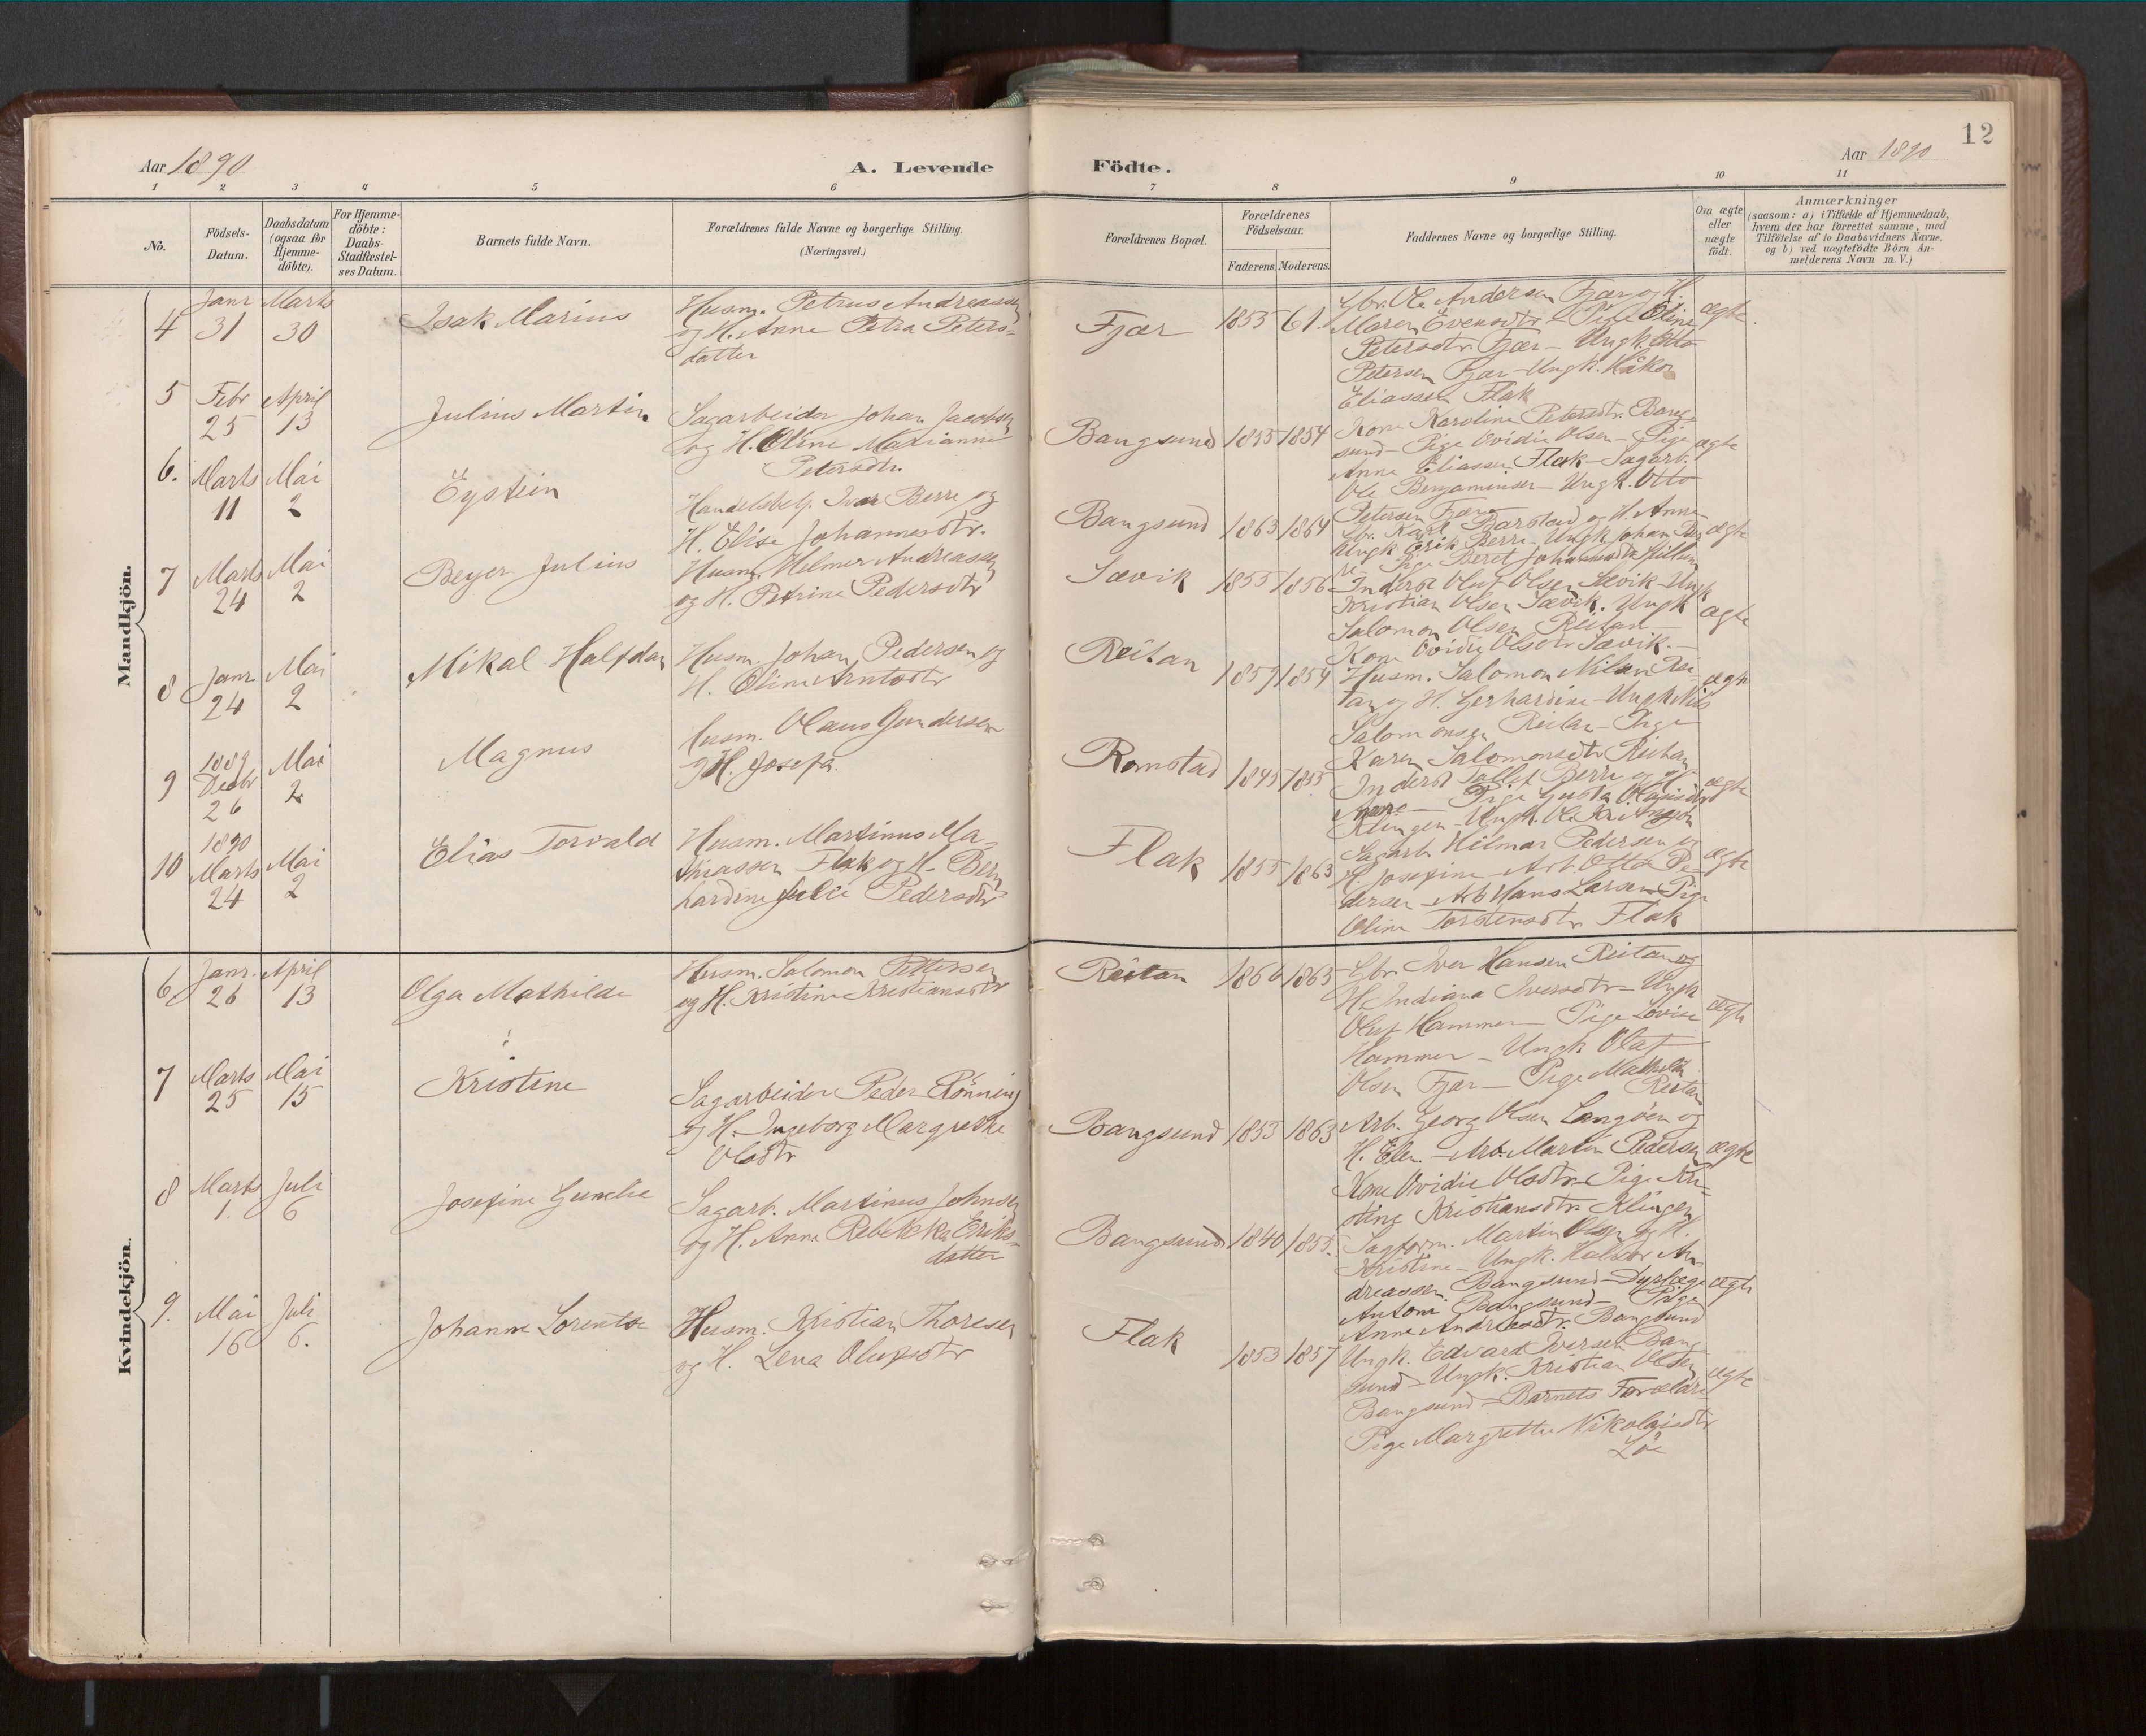 12
Aar 1890
A. Levende
Födte.
Aar 1890
1 2 3 4 5 6 7 8 9 10 11
No.
Födsels-
Datum.
Daabsdatum
(ogsaa for
Hjemme-
döbte).
For Hjemme-
döbte:
Daabs-
Stadfæstel-
ses Datum.
Barnets fulde Navn.
Forældrenes fulde Navne og borgerlige Stilling.
(Næringsvei.)
Forældrenes Bopæl.
Forældrenes
Födselsaar.
Faderens. Moderens.
Faddernes Navne og borgerlige Stilling.
Om ægte
eller
uægte
født.
Anmærkninger
(saasom: a) i Tilfælde af Hjemmedaab,
hvem der har forrettet samme, med
Tilföielse af to Daabsvidners Navne,
og b) ved uægtefödte Börn An-
melderens Navn m. V.)
Mandkjön.
4
Janr
31
Marts
30
Isak Marius
Husm. Petrus Andreassen
og H. Anne Petra Peters-
datter
Fjær
1855
61.
Gbr. Ole Andersen Fjær og H.
Maren Evensdtr - Pige Eline
Petersdtr Fjær - Ungk. Otto
Petersen Fjær - Ungk. Håkon
Eliassen Flak
ægte.
5
Febr
25
April
13
Julius Martin
Sagarbeider Johan Jacobsen
og H. Oline Marianne
Petersdtr.
Bangsund
1855
1854
Kone Karoline Petersdtr. Bang-
sund - Pige Ovidie Olsen - Pige
Anne Eliassen Flak - Sagarb.
Ole Benjaminsen - Ungk. Otto
Petersen Fjær
ægte
6.
Marts
11
Mai
2
Eystein
Handelsbetj. Ivar Berre og
H. Elise Johannesdtr.
Bangsund
1863
1864
Gbr. Karl Barstad og H. Anne
Ungk Erik Berre - Ungk Johan Ber
re - Pige Beret Johannesdtr
ægte
7
Marts
24
Mai
2
Beyer Julius
Husm. Helmer Andreassen
og H. Petrine Pedersdtr
Sævik
1855
1856
Inderst Oluf Olsen Sævik - Ungk
Kristian Olsen Sævik. Ungk
Salomon Olsen Reitan -
Kone Ovidie Olsdtr Sævik. -
ægte
8
Janr
24
Mai
2
Mikal Halfdan
Husm. Johan Pedersen og
H. Oline Arntsdtr
Reitan
1859
1854
Husm. Salomon Nilsen Rei-
tan og H. Gerhardine - Ungk Nils
Salomonsen Reitan - Pige
Karen Salomonsdtr Reitan
ægte
9
1889
Decbr
26
Mai
2
Magnus
Husm. Olaus Gundersen
og H. Josefa.
Romstad
1845
1855
Inderst Tollef Berre og H.
Anne - Pige Gusta Olausdtr
Klingen - Ungk. Ole
ægte
10
1890
Marts
24
Mai
2
Elias Torvald
Husm. Martinus Ma-
thiassen Flak og H. Bern
hardine Julie Pedersdtr
Flak
1855
1863
Sagarb. Hilmar Pedersen og
H. Josefine - Arb. Otto Pe-
dersen - Arb Hans Larsen - Pige
Oline Torstensdtr Flak
ægte
Kvindekjön.
6
Janr.
26
April
13
Olga Mathilde
Husm. Salomon Pettersen
og H. Kristine Kristiansdtr
Reitan
1866
1865
Gbr. Iver Hansen Reitan og
H. Indiana Iversdtr - Ungk
Oluf Hammer - Pige Lovise
Hammer - Ungk Olaf
Olsen Fjær - Pige Mathilde
Reitan
ægte
7
Marts
25
Mai
15
Kristine
Sagarbeider Peder Rönning
og H. Ingeborg Margrethe
Olsdtr
Bangsund
1853
1863
Arb. Georg Olsen Langöen og
H. Elen. - Arb. Martin Pedersen
Kone Ovidie Olsdtr - Pige Kri-
stine Kristiansdtr Klingen
ægte
8
Marts
1.
Juli
6
Josefine Gunelie
Sagarb. Martinus Johnsen
og H. Anna Rebekka Eriks-
datter
Bangsund
1840
1855.
Sagform. Martin Olsen og H.
Kristine - Ungk. Halvor An-
dreassen Bangsund - Dyrlæge
Antoni Bangsund - Pige
Anne Andreasdtr. Bangsund
ægte
9.
Mai
16
Juli
6.
Johanne Lorentse
Husm. Kristian Thoresen
og H. Lena Olufsdtr
Flak
1853
1857
Ungk. Edvard Iversen Bang-
sund - Ungk. Kristian Olsen
Bangsund - Barnets Forældre
Pige Margrethe Nikolaisdtr
Löe
ægte